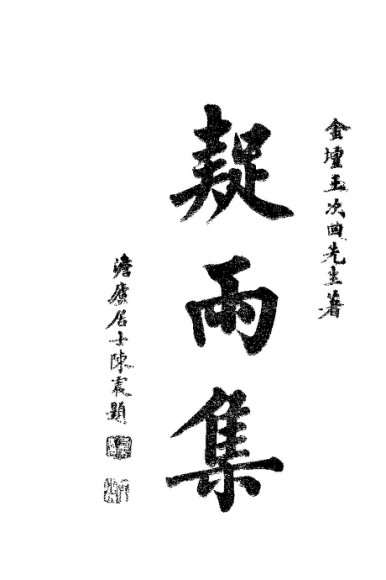 金壇王次回先生著
疑雨集
澹廬居士陳宧題